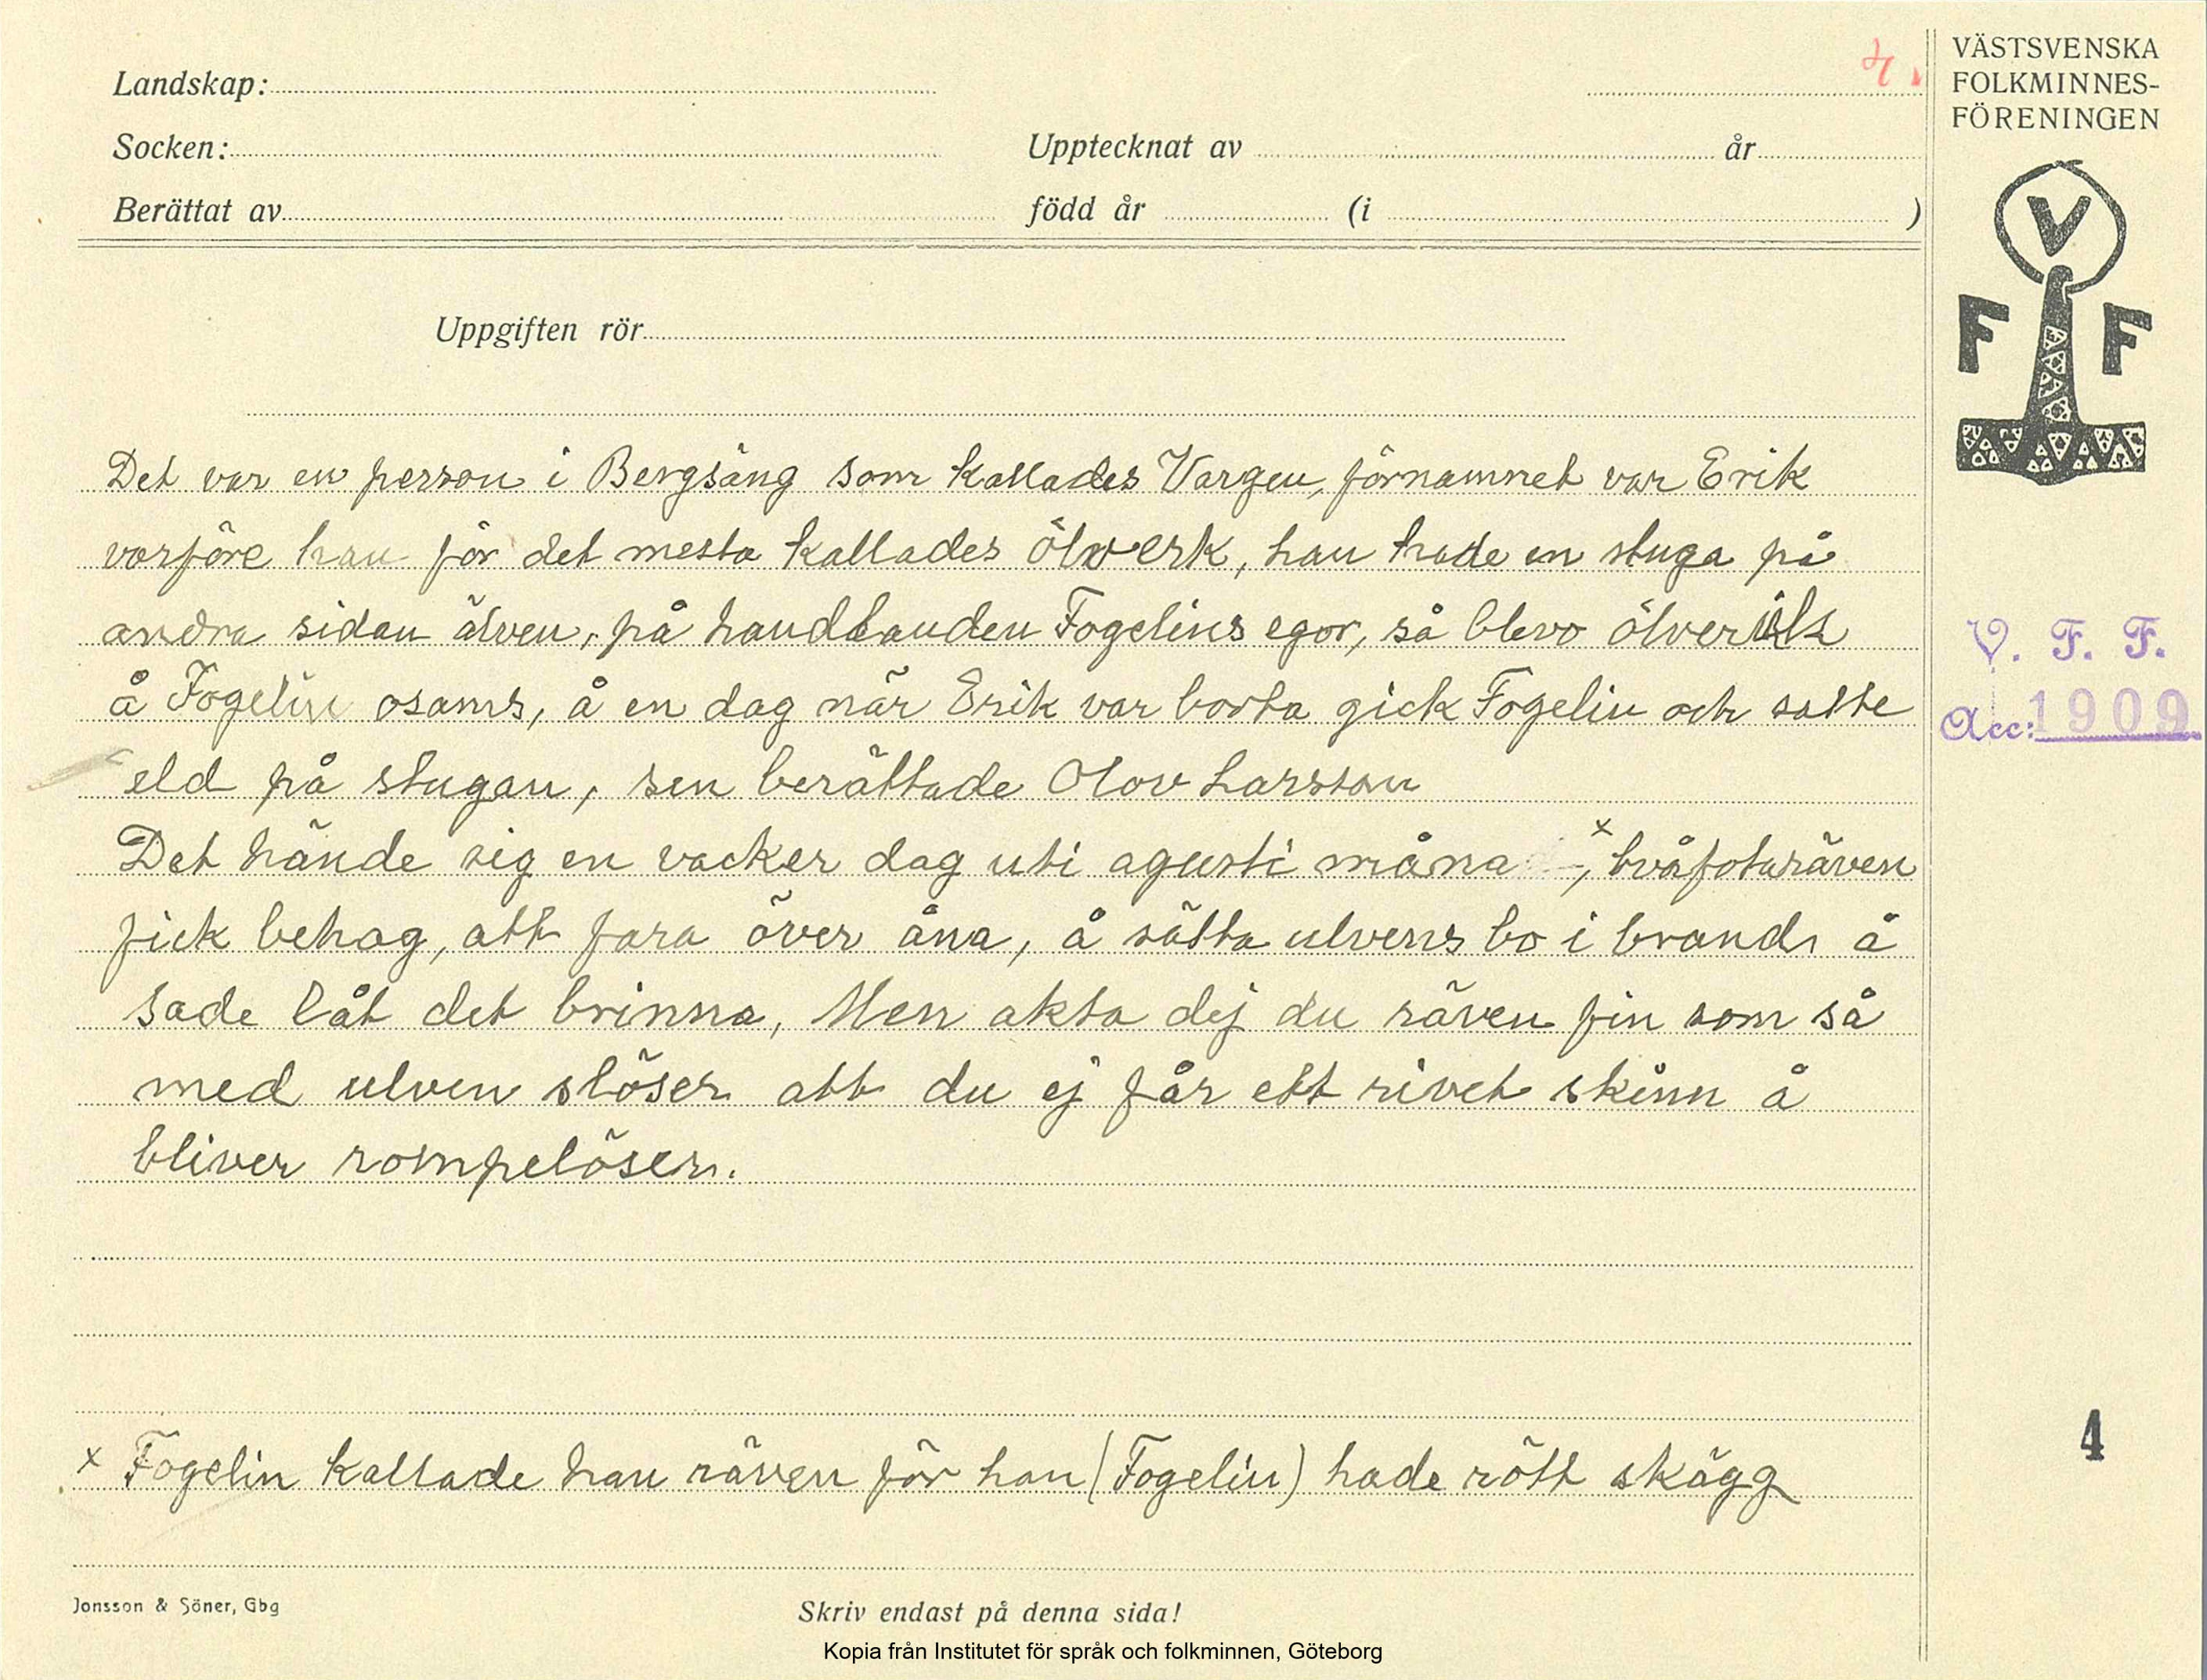 4.
VÄSTSVENSKA
FOLKMINNES-
FÖRENINGEN
Landskap:
Socken:
Upptecknat av år
Berättat av
född år (i )
V
F F
Uppgiften rör
Det var en person i Bergsäng som kallades Vargen, förnamnet var Erik
varföre han för det mesta kallades ölverk, han hade en stuga på
andra sidan älven, på handlanden Fogelins egor, så blevo ölverik
å Fogelin osams, å en dag när Erik var borta gick Fogelin och satte
eld på stugan, sen berättade Olov Larsson
Det hände sig en vacker dag uti agusti måna, x tvåfotaräven
fick behag, att fara över åna, å sätta ulvens bo i brand, å
sade låt det brinna, Men akta dej du räven fin som så
med ulven slöser att du ej får ett rivet skinn å
bliver rompelöser.
x Fogelin kallade han räven för han (Fogelin) hade rött skägg
V. F. F.
Acc: 1909
4
Jonsson & Söner, Gbg
Skriv endast på denna sida!
Kopia från Institutet för språk och folkminnen, Göteborg